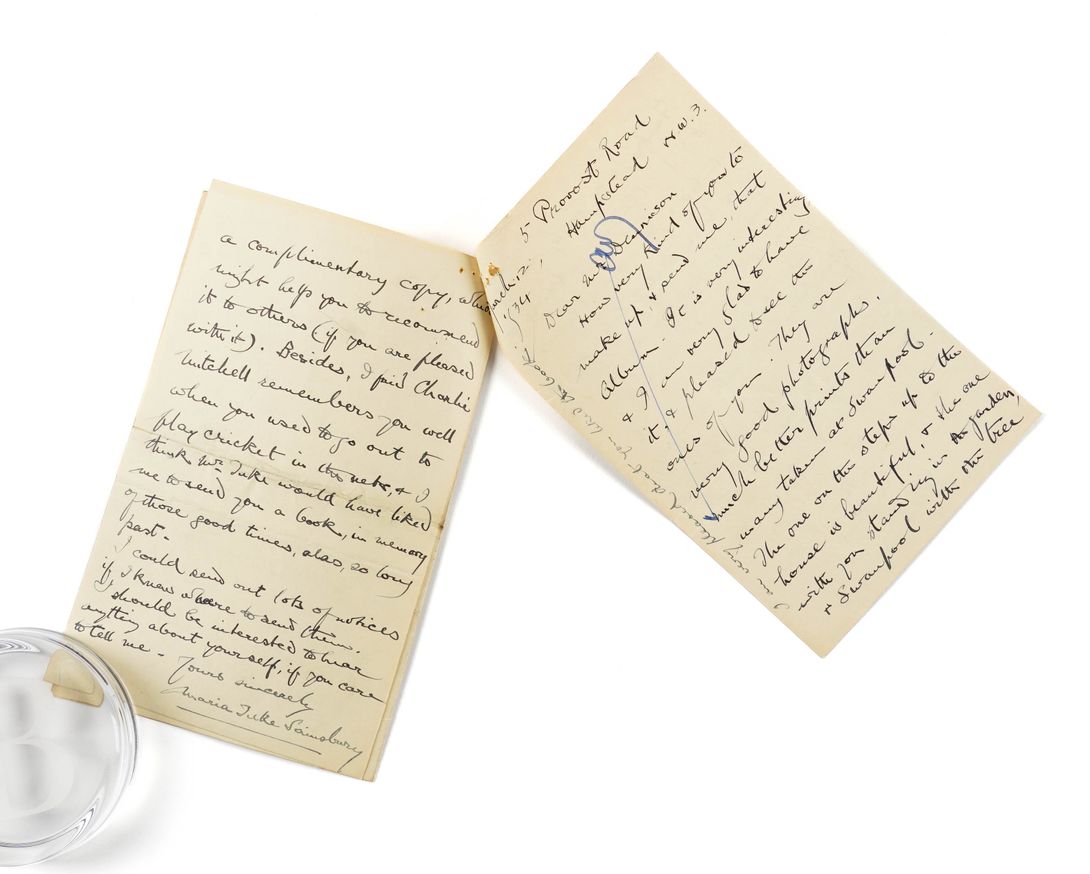 5 Provost Road
Hampstead N.W.3.
March 12.
1934
Dear Mr Denison
How very kind of you to
make up, & send me, that
Album. It is very interesting
& I am very glad to have
it, & pleased to see the
ones of you. They are
very good photographs,
much better prints than
many taken at Swanpool.
The one on the steps up to the
house is beautiful, & the one
with you standing in the garden,
& Swanpool with the tree
very pleased that you liked the book
a complimentary copy, who
might help you to recommend
it to others (if you are pleased
with it). Besides, I find Charlie
Mitchell remembers you well
when you used to go out to
play cricket in the nets, & I
think Mr Tuke would have liked
me to send you a book, in memory
of those good times, also, so long
past.
I could send out lots of notices
if I knew where to send them.
I should be interested to hear
anything about yourself, if you care
to tell me. Yours sincerely
Maria Tuke Sainsbury
B